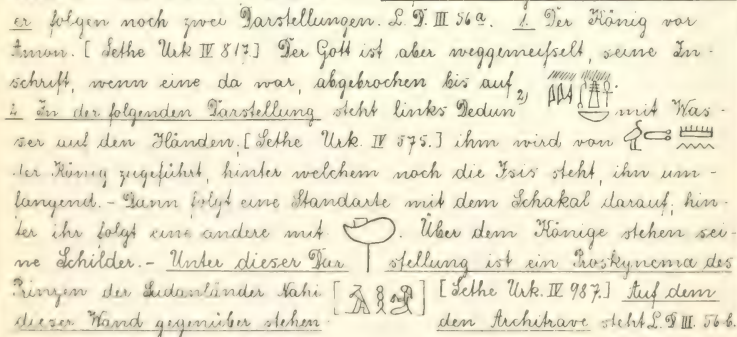 er folgen noch zwei Darstellungen. L. D. III 56a. 1. Der König vor
Amon. [Sethe Urk IV 817] Der Gott ist aber weggemeifselt, seine In-
schrift, wenn eine da war, abgebrochen bis auf 2)
2. In der folgenden Darstellung steht links Dedun mit Was-
ser auf den Händen. [Sethe Urk. IV 575.] ihm wird von
der König zugeführt, hinter welchem noch die Isis steht, ihn um-
fangend. - Dann folgt eine Standarte mit dem Schakal darauf; hin-
ter ihr folgt eine andere mit . Über dem Könige stehen sei-
ne Schilder. - Unter dieser Darstellung ist ein Proskynema des
Prinzen der Sudanländer Nahi [ ] [Sethe Urk. IV 987.] Auf dem
dieser Wand gegenüber stehenden Architrave steht L. D III. 56 b.